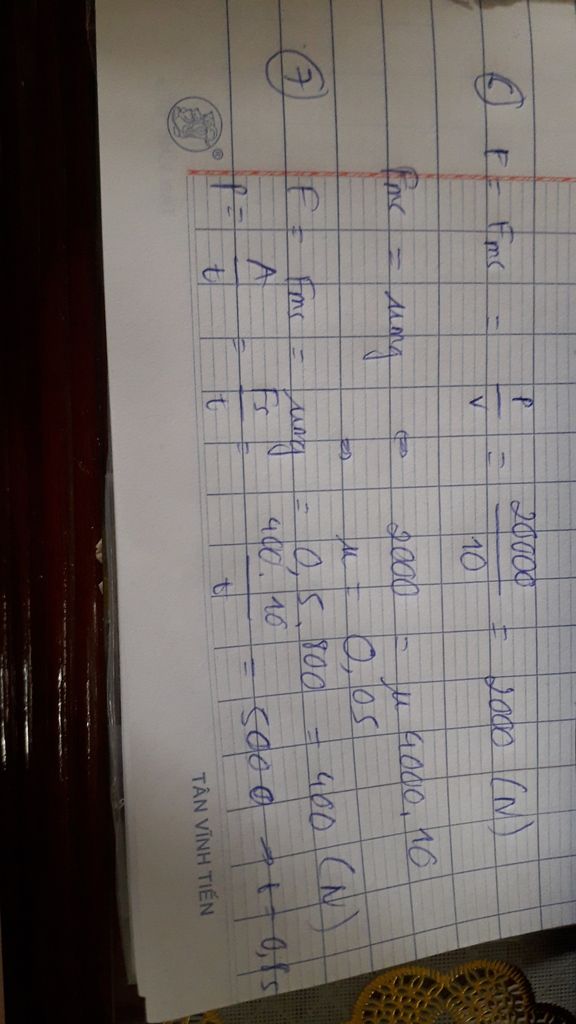 6 F = Fmc = P/v = 20000/10 = 2000 (N)
Fmc = μmg ⇔ 2000 = μ 4000.10
⇔ μ = 0,05
7 F = Fmc = μmg = 0,5.800 = 400 (N)
P = A/t = Fs/t = 400.10/t = 5000 → t = 0,8s
®
TÂN VĨNH TIẾN